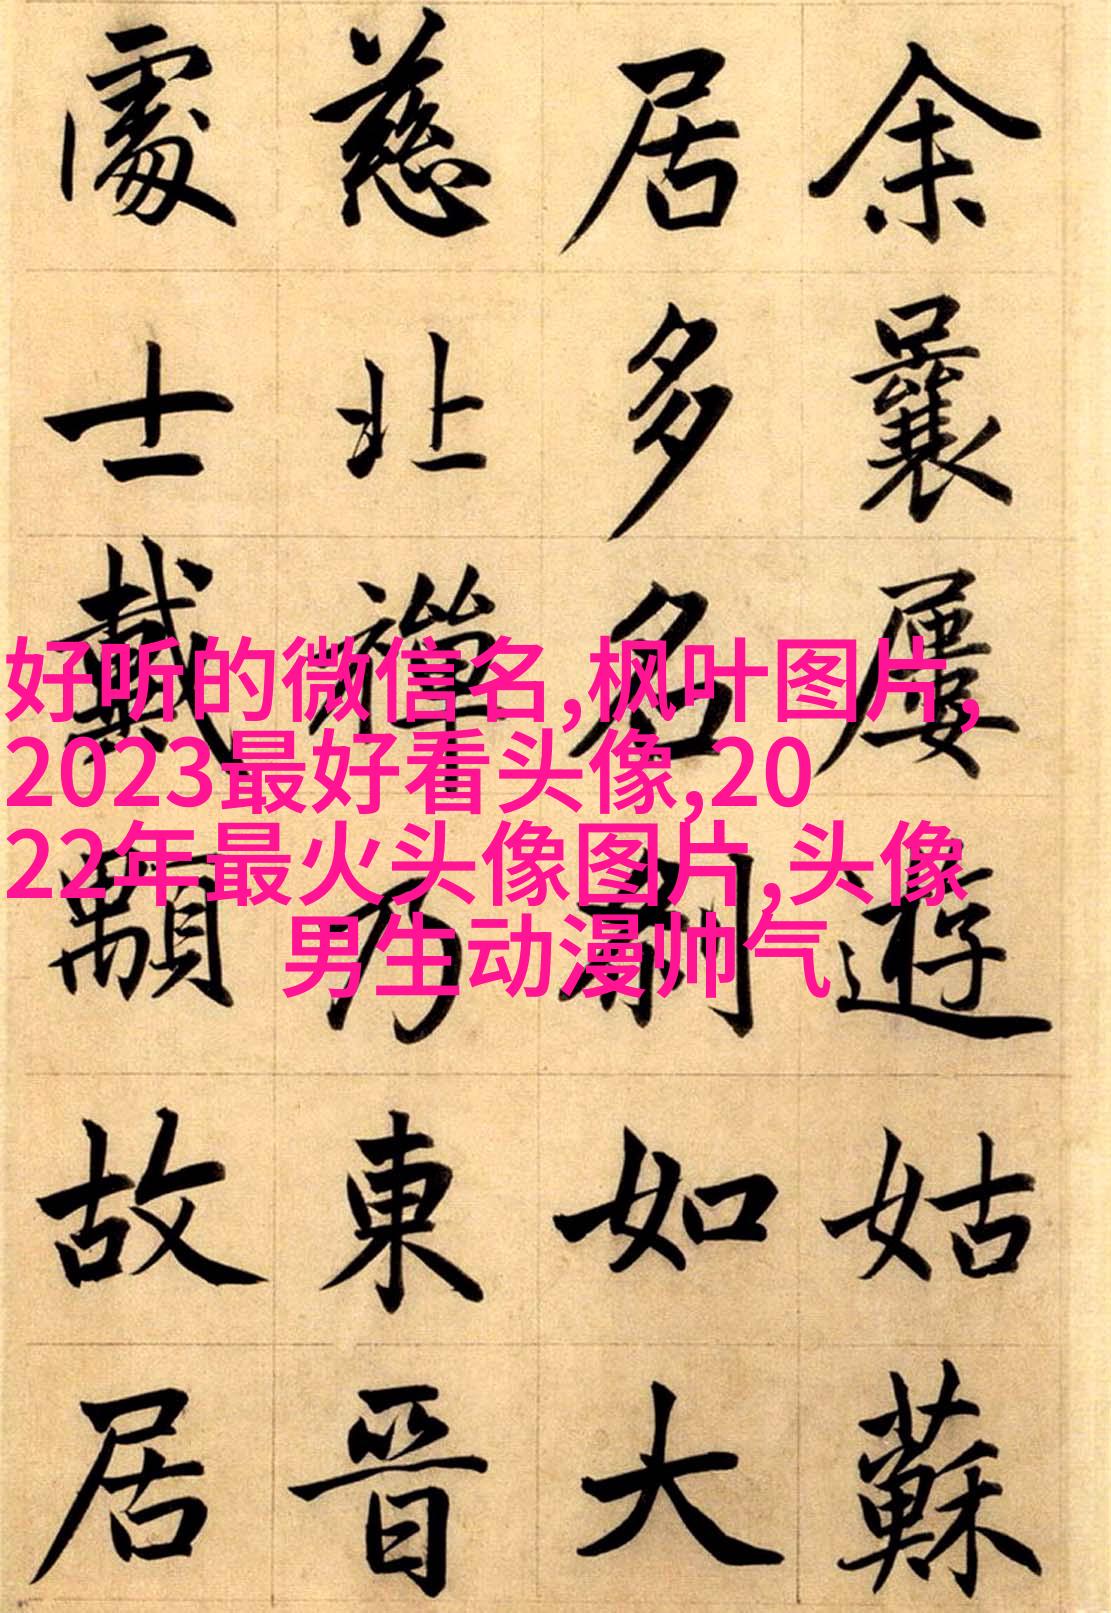 余曩屢遊姑蘇
居多名刹如大
慈北禪乃東晉
處士戴顒故居
好听的微信名,枫叶图片,
2023最好看头像,20
22年最火头像图片,头像
男生动漫帅气